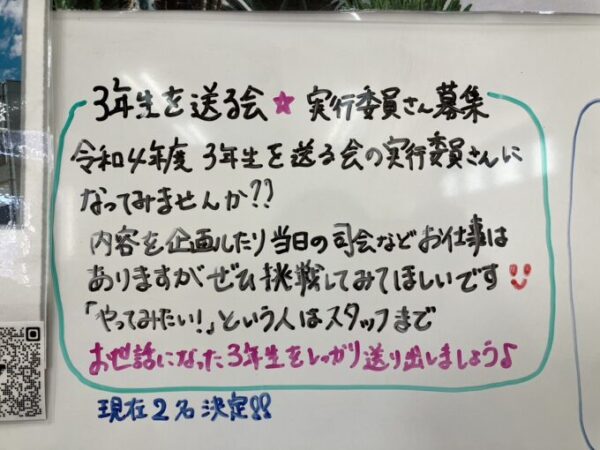 3年生を送る会★実行委員さん募集
令和4年度 3年生を送る会の実行委員さんに
なってみませんか??
内容を企画したり当日の司会などお仕事は
ありますがぜひ挑戦してみてほしいです
「やってみたい!」という人はスタッフまで
お世話になった3年生をしっかり送り出しましょう♪
現在2名決定!!